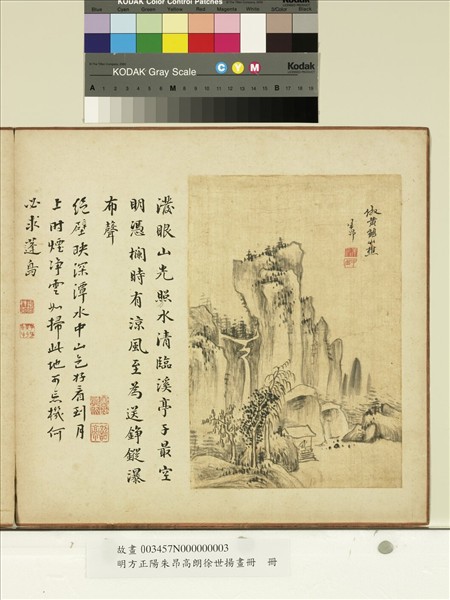 KODAK Color Control Patches
Blue Cyan Green Yellow Red Magenta White 3/Color Black
KODAK Gray Scale
C Y M
Kodak
A 1 2 3 4 5 6 M 8 9 10 11 12 13 14 15 B 17 18 19
倣黃鶴山樵
潑眼山光照水清臨溪亭子最空
明憑欄時有涼風至為送錚鏦瀑
布聲
絕壁映深潭水中山色好看到月
上時煙淨雲如掃此地可忘機何
必求蓬島
故畫 003457N000000003
明方正陽朱昂高朗徐世揚畫冊 冊